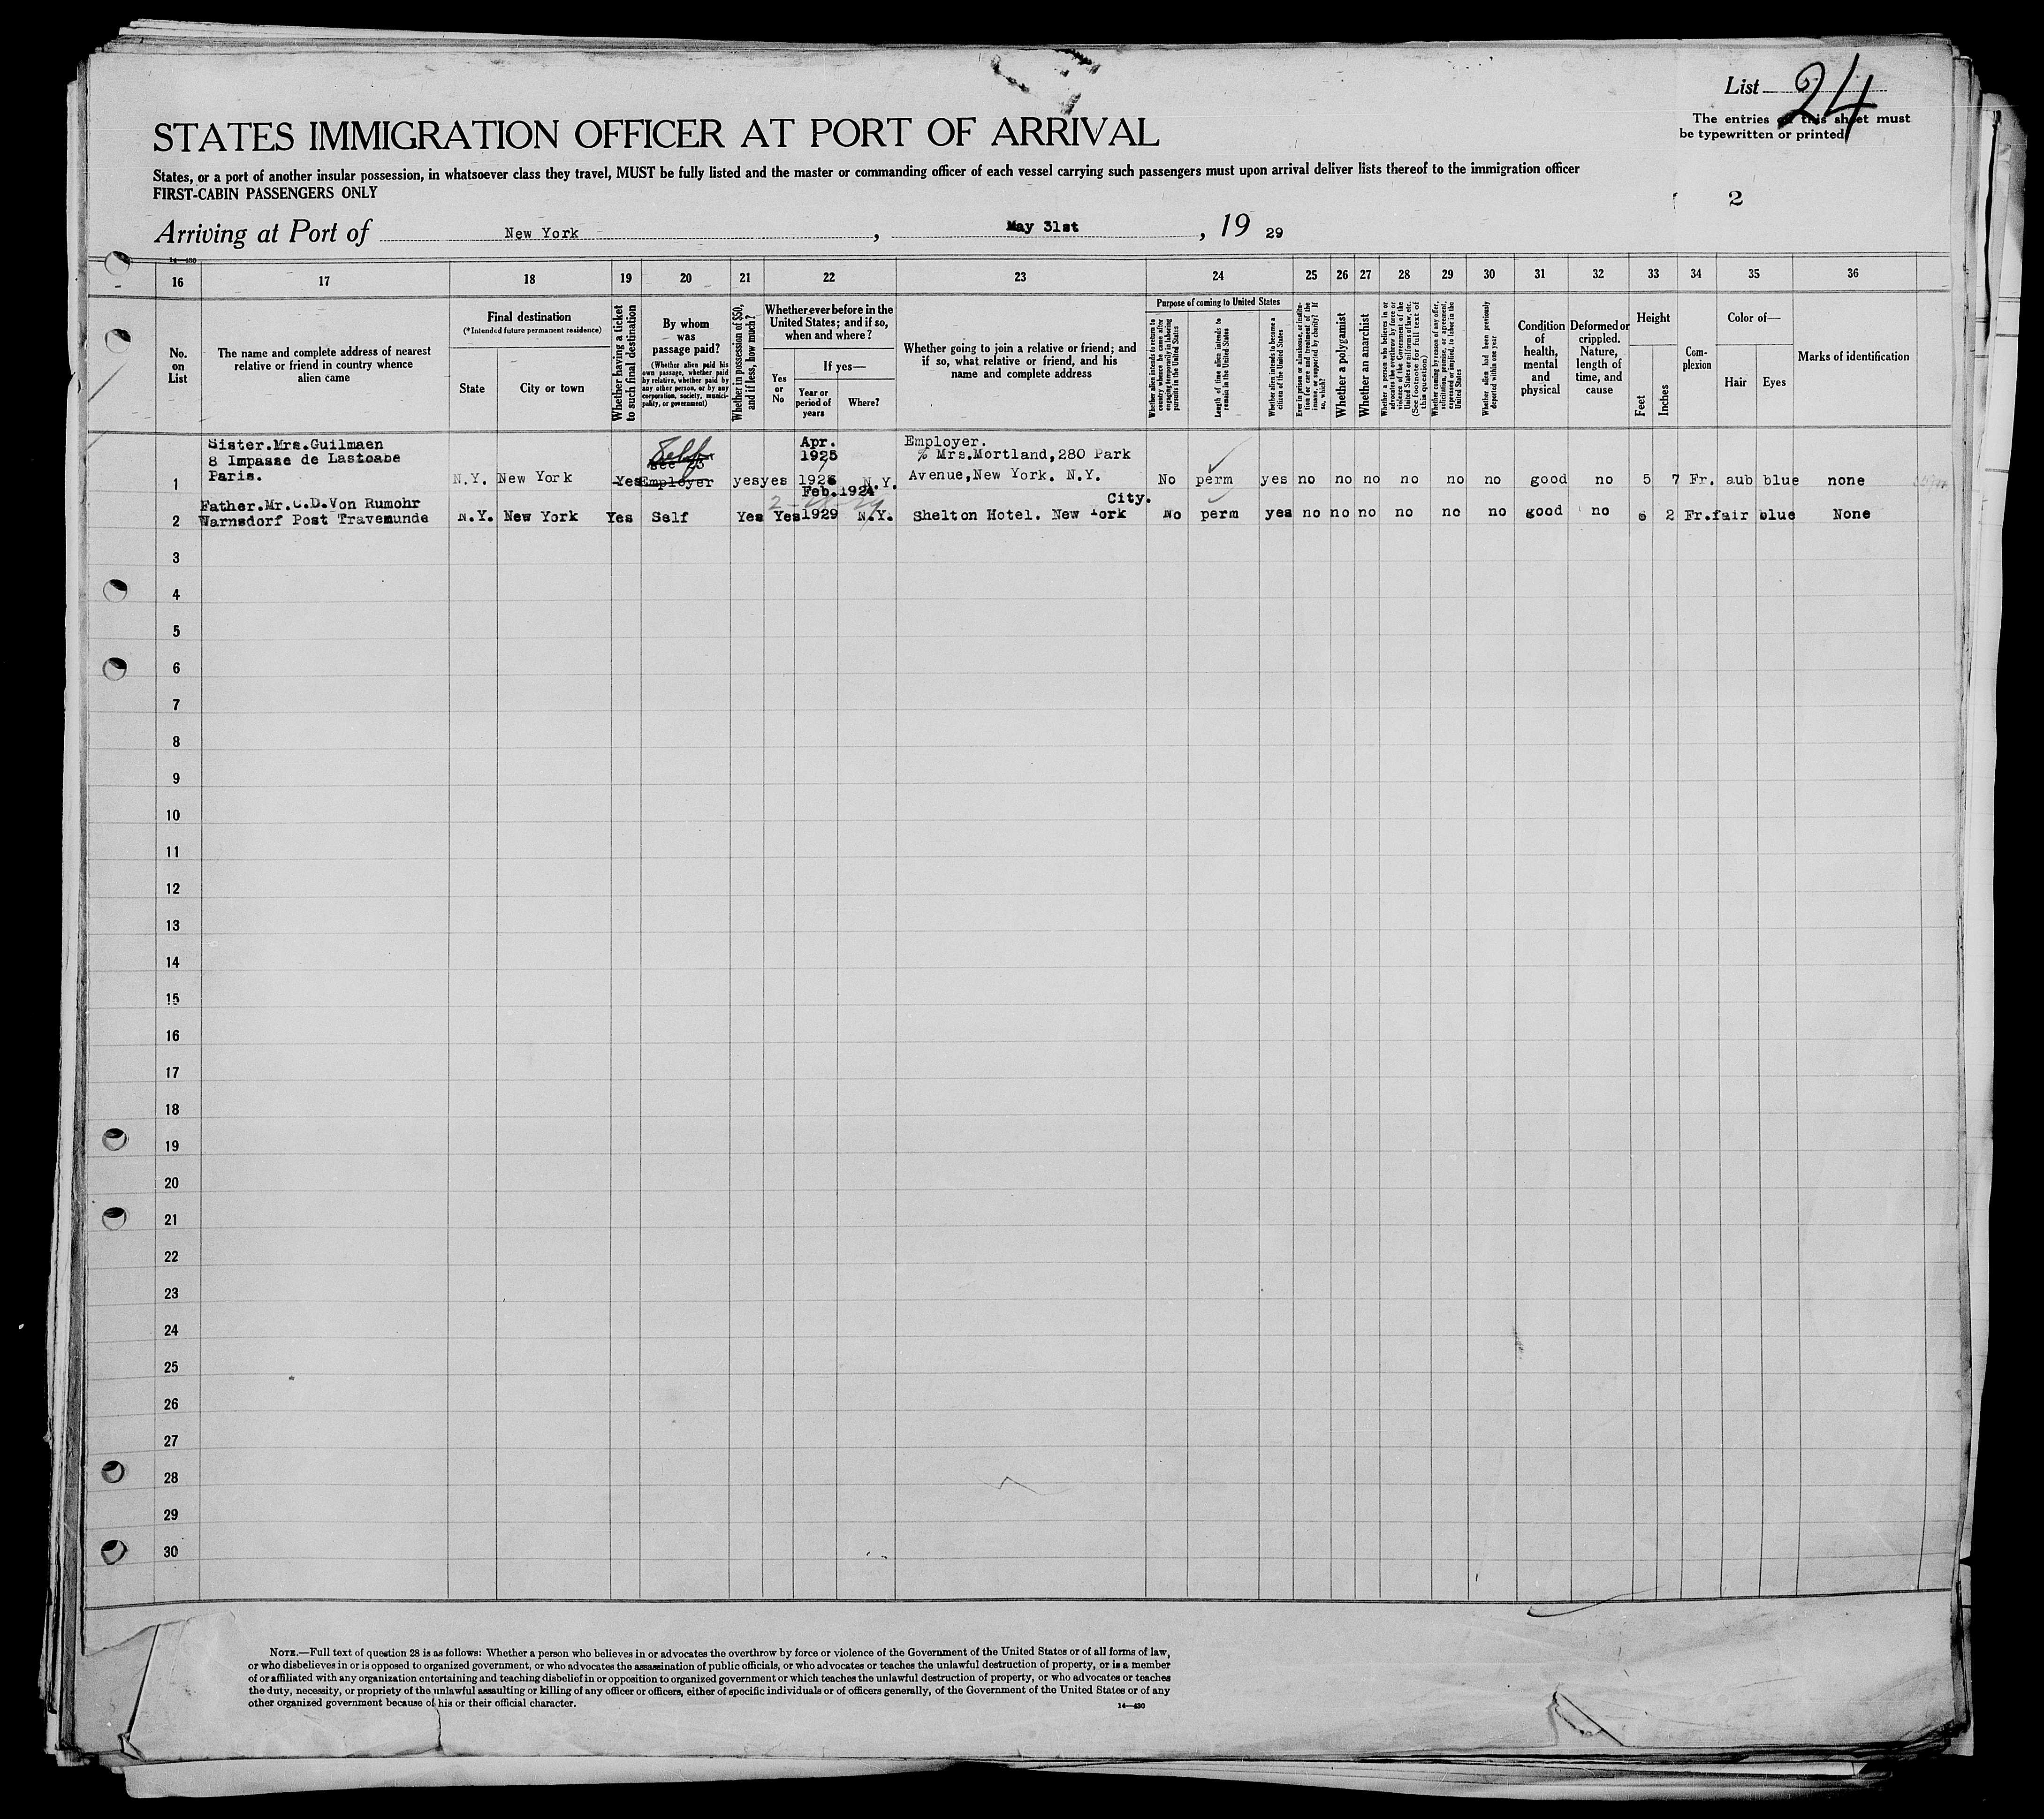 List 24
The entries on this sheet must
be typewritten or printed
STATES IMMIGRATION OFFICER AT PORT OF ARRIVAL
States, or a port of another insular possession, in whatsoever class they travel, MUST be fully listed and the master or commanding officer of each vessel carrying such passengers must upon arrival deliver lists thereof to the immigration officer
FIRST-CABIN PASSENGERS ONLY
2
Arriving at Port of New York, May 31st, 19 29
14—430
16 17 18 19 20 21 22 23 24 25 26 27 28 29 30 31 32 33 34 35 36
No. on List
The name and complete address of nearest relative or friend in country whence alien came
Final destination
(*Intended future permanent residence)
State
City or town
Whether having a ticket to such final destination
By whom was passage paid?
(Whether alien paid his own passage, whether paid by relative, whether paid by any other person, or by any corporation, society, municipality, or government)
Whether in possession of $50, and if less, how much?
Whether ever before in the United States; and if so, when and where?
Yes or No
If yes—
Year or period of years
Where?
Whether going to join a relative or friend; and if so, what relative or friend, and his name and complete address
Purpose of coming to United States
Whether alien intends to return to country whence he came after engaging temporarily in laboring pursuits in the United States
Length of time alien intends to remain in the United States
Whether alien intends to become a citizen of the United States
Ever in prison or almshouse, or institution for care and treatment of the insane, or supported by charity? If so, which?
Whether a polygamist
Whether an anarchist
Whether a person who believes in or advocates the overthrow by force or violence of the Government of the United States or all forms of law, etc. (See footnote for full text of this question)
Whether coming by reason of any offer, solicitation, promise, or agreement, expressed or implied, to labor in the United States
Whether alien had been previously deported within one year
Condition of health, mental and physical
Deformed or crippled. Nature, length of time, and cause
Height
Feet
Inches
Complexion
Color of—
Hair
Eyes
Marks of identification
Sister.Mrs.Guilmaen
8 Impasse de Lastoabe
Paris.
Self
Employer
Apr.
1925
Employer.
% Mrs.Mortland,280 Park
Avenue,New York. N.Y.
1 N.Y. New York Yes yes yes N.Y. No perm yes no no no no no no good no 5 7 Fr. aub blue none
Father.Mr.C.D.Von Rumohr
Feb.1924
City.
2 Warnsdorf Post Travemunde N.Y. New York Yes Self Yes Yes 1929 N.Y. Shelton Hotel. New York No perm yes no no no no no no good no 6 2 Fr. fair blue None
3
4
5
6
7
8
9
10
11
12
13
14
15
16
17
18
19
20
21
22
23
24
25
26
27
28
29
30
NOTE.—Full text of question 28 is as follows: Whether a person who believes in or advocates the overthrow by force or violence of the Government of the United States or of all forms of law,
or who disbelieves in or is opposed to organized government, or who advocates the assassination of public officials, or who advocates or teaches the unlawful destruction of property, or is a member
of or affiliated with any organization entertaining and teaching disbelief in or opposition to organized government or which teaches the unlawful destruction of property, or who advocates or teaches
the duty, necessity, or propriety of the unlawful assaulting or killing of any officer or officers, either of specific individuals or of officers generally, of the Government of the United States or of any
other organized government because of his or their official character.
14—430